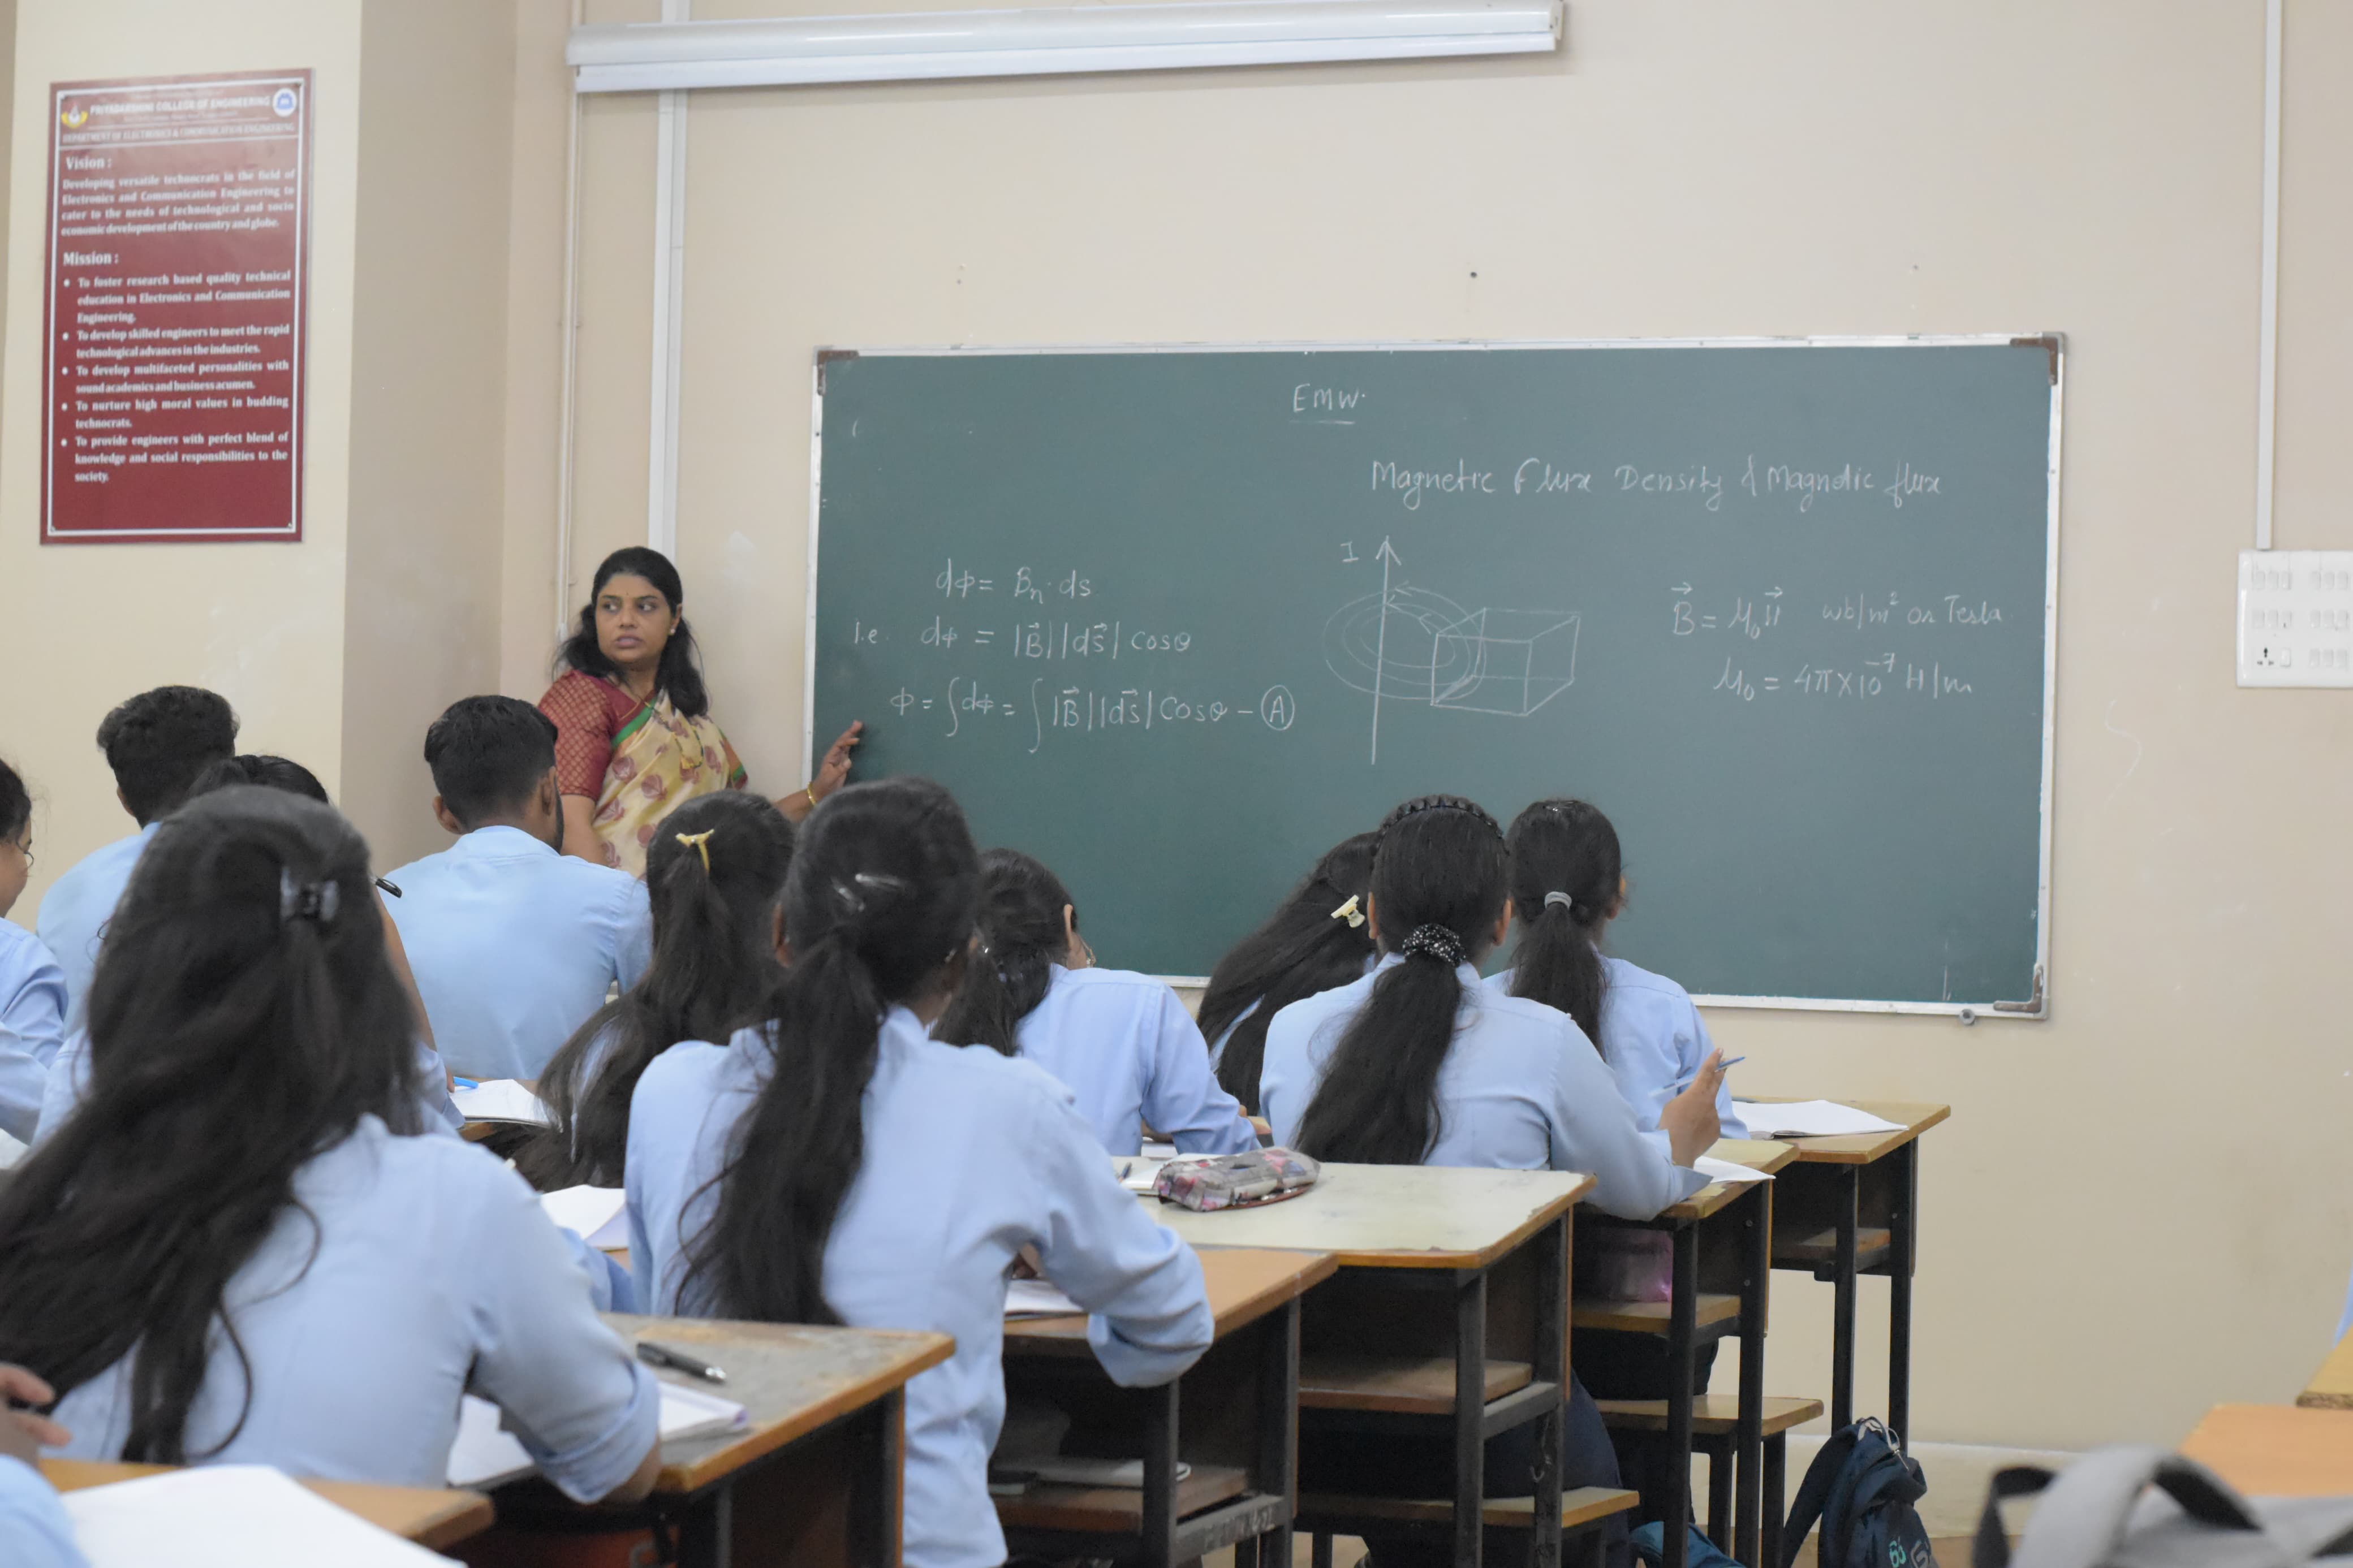 PRIYADARSHINI COLLEGE OF ENGINEERING
DEPARTMENT OF ELECTRONICS & COMMUNICATION ENGINEERING
Vision :
Developing versatile technocrats in the field of
Electronics and Communication Engineering to
cater to the needs of technological and socio
economic development of the country and globe.
Mission :
• To foster research based quality technical
education in Electronics and Communication
Engineering.
• To develop skilled engineers to meet the rapid
technological advances in the industries.
• To develop multifaceted personalities with
sound academics and business acumen.
• To nurture high moral values in budding
technocrats.
• To provide engineers with perfect blend of
knowledge and social responsibilities to the
society.
EMW.
Magnetic Flux Density & Magnetic flux
dϕ = Bn · ds
i.e. dϕ = |B⃗| |ds⃗| cosθ
ϕ = ∫dϕ = ∫|B⃗| |ds⃗| Cosθ – Ⓐ
I
B⃗ = μ₀H⃗ wb/m² or Tesla
μ₀ = 4π×10⁻⁷ H/m